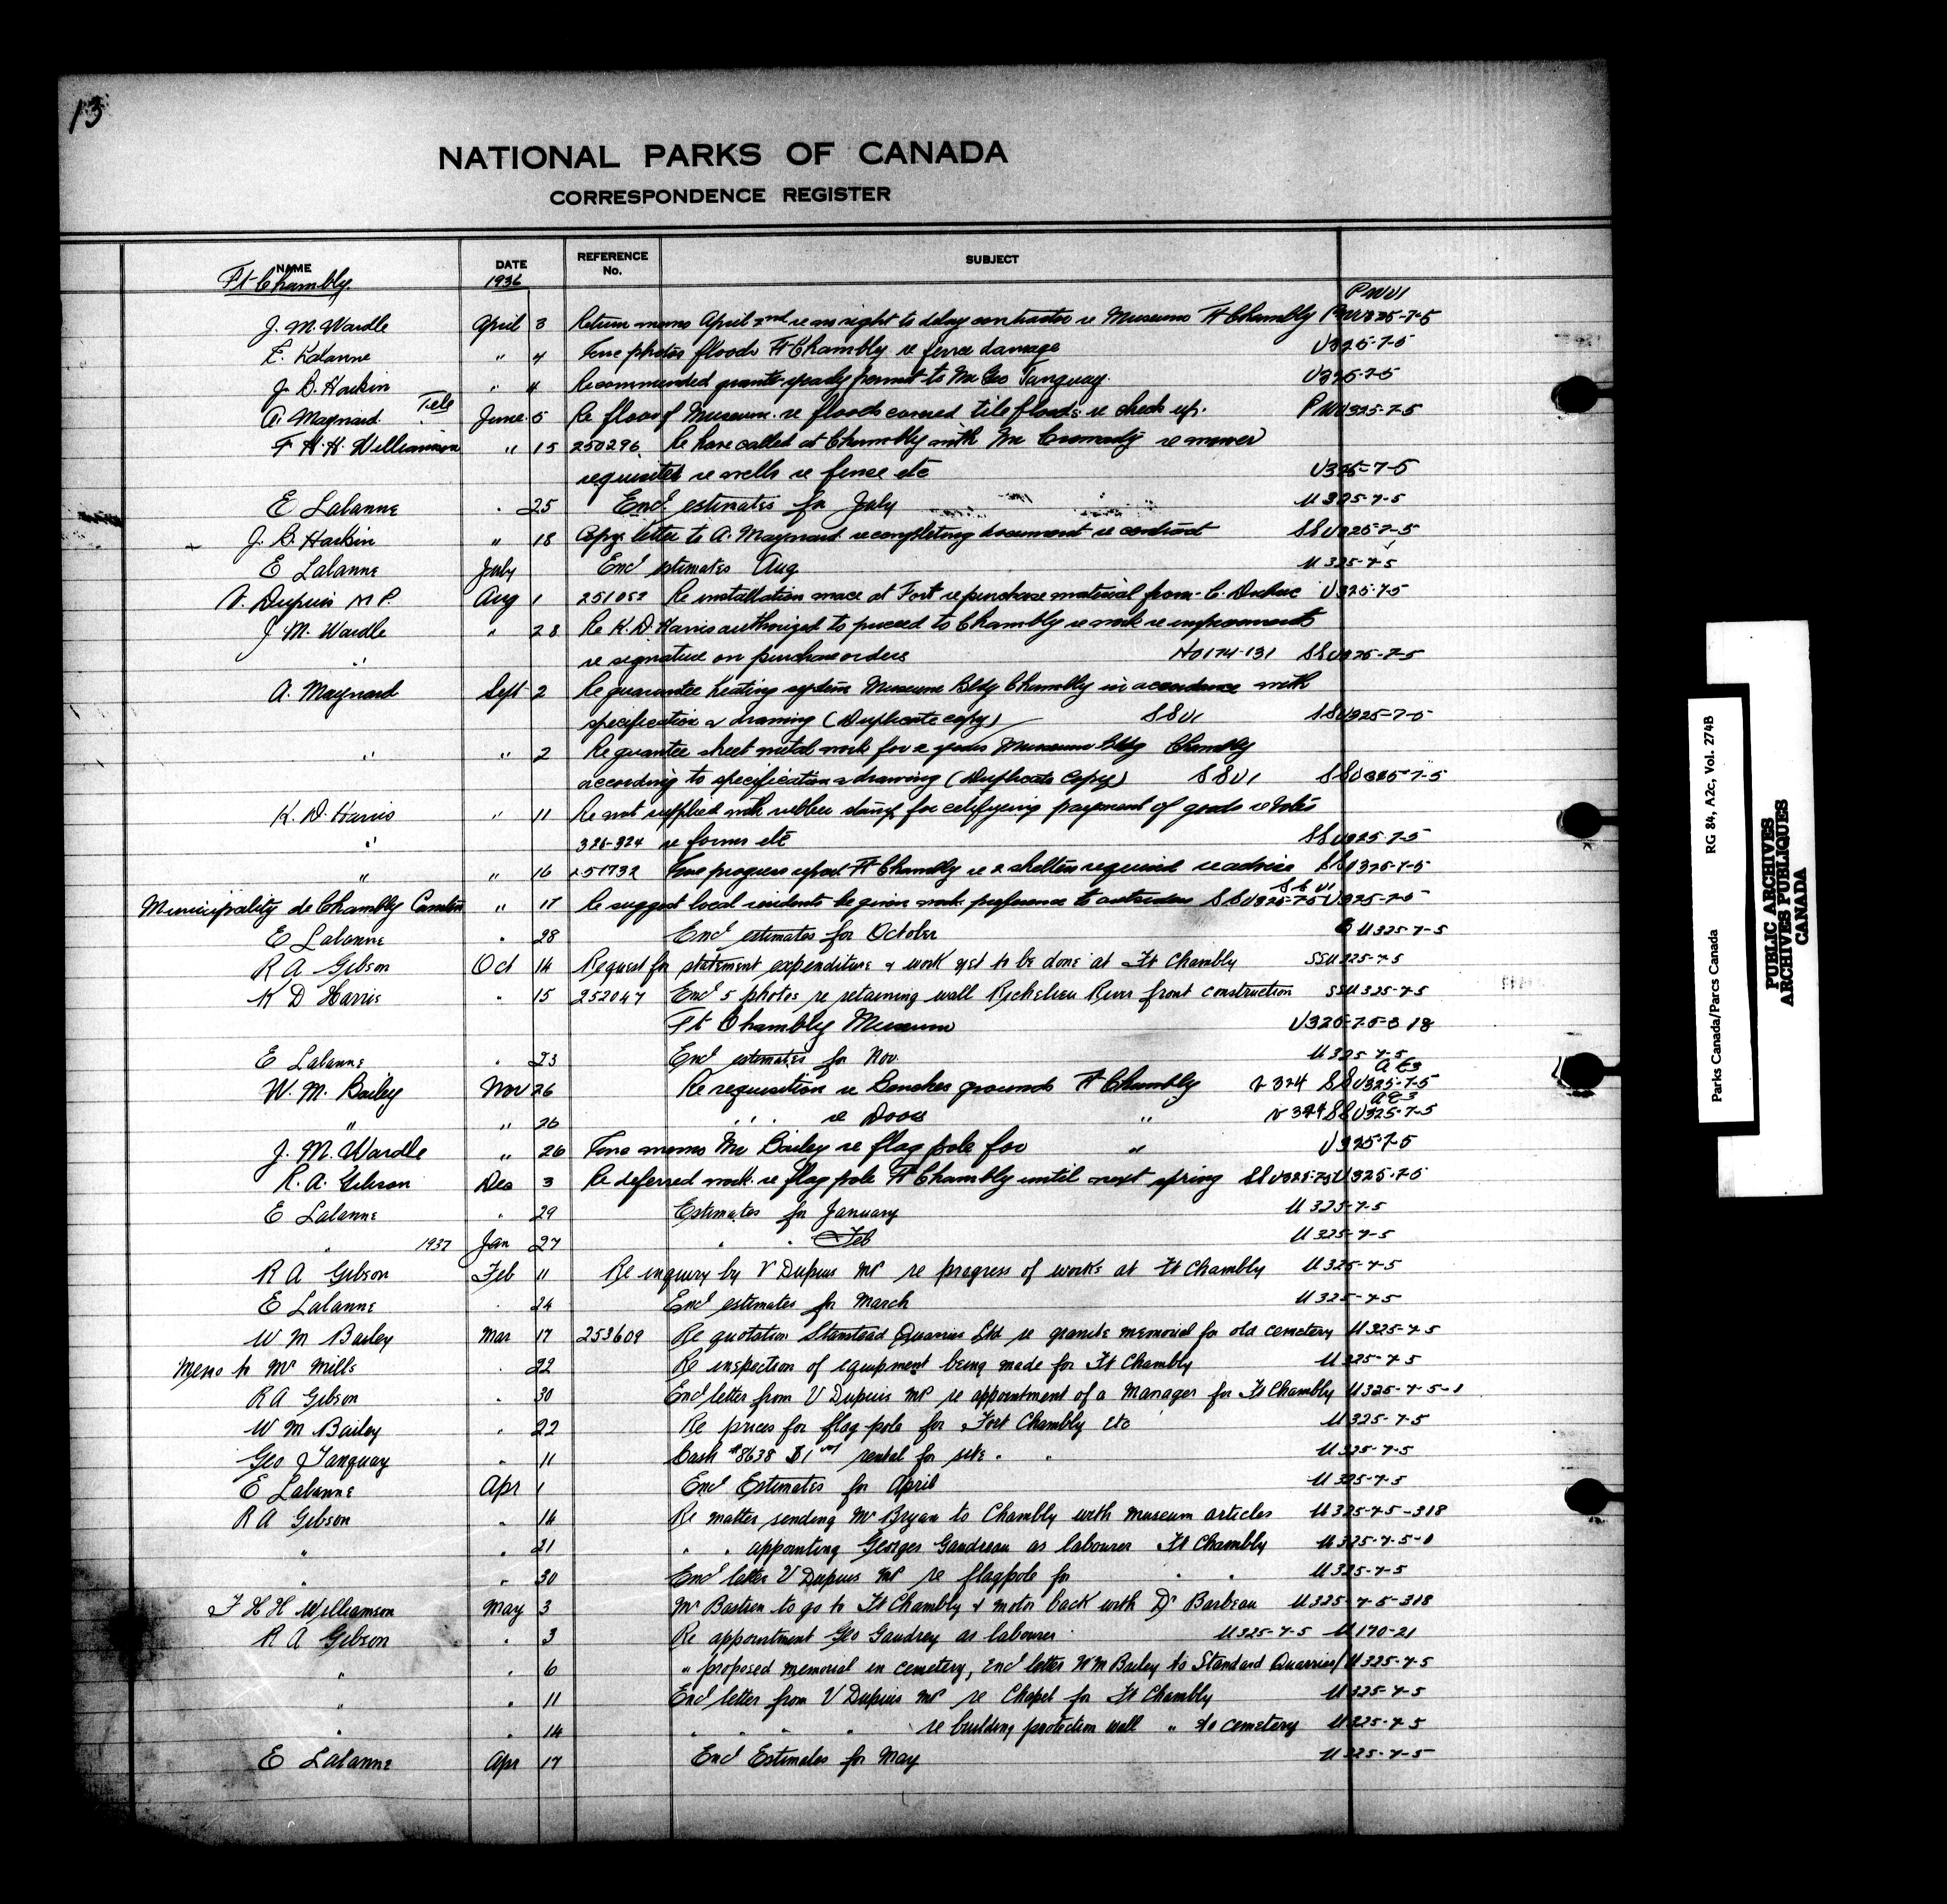 13
NATIONAL PARKS OF CANADA
CORRESPONDENCE REGISTER
NAME DATE REFERENCE No. SUBJECT
Ft Chambly 1936
PWU1
J. M. Wardle April 3 Return memo April 2nd re no right to delay contractor re Museum Ft Chambly PWU325-7-5
E. Lalanne " 4 photos floods Ft Chambly re fence damage U325-7-5
J. B. Harkin " 4 Recommended grants yearly permit to Mr Geo Tanguay. U325-7-5
A. Maynard Tele June 5 Re floor of Museum re floods tile floods re check up. PWU325-7-5
F. H. H. Williamson " 15 250296 Re have called at Chambly with Mr re mower
requisites re wells re fence etc U325-7-5
E Lalanne " 25 Encl estimates for July U325-7-5
J. B. Harkin " 18 Copy letter to A. Maynard re completing document re contract SSU325-7-5
E Lalanne July Encl estimates Aug U325-7-5
V. Dupuis M P. Aug 1 251052 Re installation at Fort re purchase material from C. U325-7-5
J M. Wardle " 28 Re K. D. Harris authorized to proceed to Chambly re work re improvements
" re signature on purchase orders H0174-131 SSU325-7-5
A. Maynard Sept 2 Re guarantee heating system Museum Bldg Chambly in accordance with
specification & drawing (Duplicate copy) SSU1 SSU325-7-5
" " 2 Re guantee sheet metal work for 2 years Museum Bldg Chambly
according to specification & drawing (Duplicate Copy) SSU1 SSU325-7-5
K. D. Harris " 11 Re not supplied with rubber stamp for certifying payment of goods re Votes
" 326-324 re forms etc SSU325-7-5
" " 16 251732 progress report Ft Chambly re 2 shelters required re advise SSU325-7-5
SSU1
Municipality de Chambly Canton " 17 Re suggest local residents be given work preference to outsiders SSU325-7-5 U325-7-5
E Lalanne " 28 Encl estimates for October U325-7-5
R A Gibson Oct 14 Request for statement expenditure & work yet to be done at Ft Chambly SSU325-7-5
K D Harris " 15 252047 Encl 5 photos re retaining wall Richelieu River front construction SSU325-7-5
Ft Chambly Museum U325-7-5-318
E Lalanne " 23 Encl estimates for Nov. U325-7-5
AE3
W. M. Bailey Nov 26 Re requisition re Benches grounds Ft Chambly V324 SSU325-7-5
AE3
" " 26 " " re Doors " V324 SSU325-7-5
J. M. Wardle " 26 memo Mr Bailey re flag pole for " U325-7-5
R. A. Gibson Dec 3 Re deferred work re flag pole Ft Chambly until next spring SSU325-7-5 U325-7-5
E Lalanne " 29 Estimates for January U325-7-5
" 1937 Jan 27 " " Feb U325-7-5
R A Gibson Feb 11 Re inquiry by V Dupuis MP re progress of works at Ft Chambly U325-7-5
E Lalanne " 24 Encl estimates for March U325-7-5
W M Bailey Mar 17 253609 Re quotation Stanstead Quarries Ltd re granite memorial for old cemetery U325-7-5
Memo to Mr Mills " 22 Re inspection of equipment being made for Ft Chambly U325-7-5
R A Gibson " 30 Encl letter from V Dupuis MP re appointment of a Manager for Ft Chambly U325-7-5-1
W M Bailey " 22 Re prices for flag pole for Fort Chambly etc U325-7-5
Geo Tanguay " 11 Cash #8638 $1 00/ rental for site " " U325-7-5
E Lalanne Apr 1 Encl Estimates for April U325-7-5
R A Gibson " 14 Re matter sending Mr Bryan to Chambly with museum articles U325-7-5-318
" " 21 " " appointing Georges Gaudreau as labourer Ft Chambly U325-7-5-1
" " 30 Encl letter V Dupuis MP re flagpole for " " U325-7-5
F H H Williamson May 3 Mr Bastien to go to Ft Chambly & motor back with Dr Barbeau U325-7-5-318
R A Gibson " 3 Re appointment Geo Gaudrey as labourer U325-7-5 U170-21
" " 6 " proposed memorial in cemetery, encl letter W M Bailey to Standard Quarries/ U325-7-5
" " 11 Encl letter from V Dupuis MP re Chapel for Ft Chambly U325-7-5
" " 14 " " " " re building protection wall " to cemetery U325-7-5
E Lalanne Apr 17 Encl Estimates for May U325-7-5
Parks Canada/Parcs Canada RG 84, A2c, Vol. 274B
PUBLIC ARCHIVES
ARCHIVES PUBLIQUES
CANADA